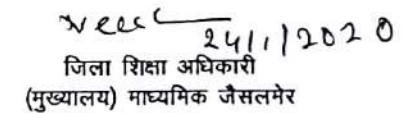 24/1/2020
जिला शिक्षा अधिकारी
(मुख्यालय) माध्यमिक जैसलमेर